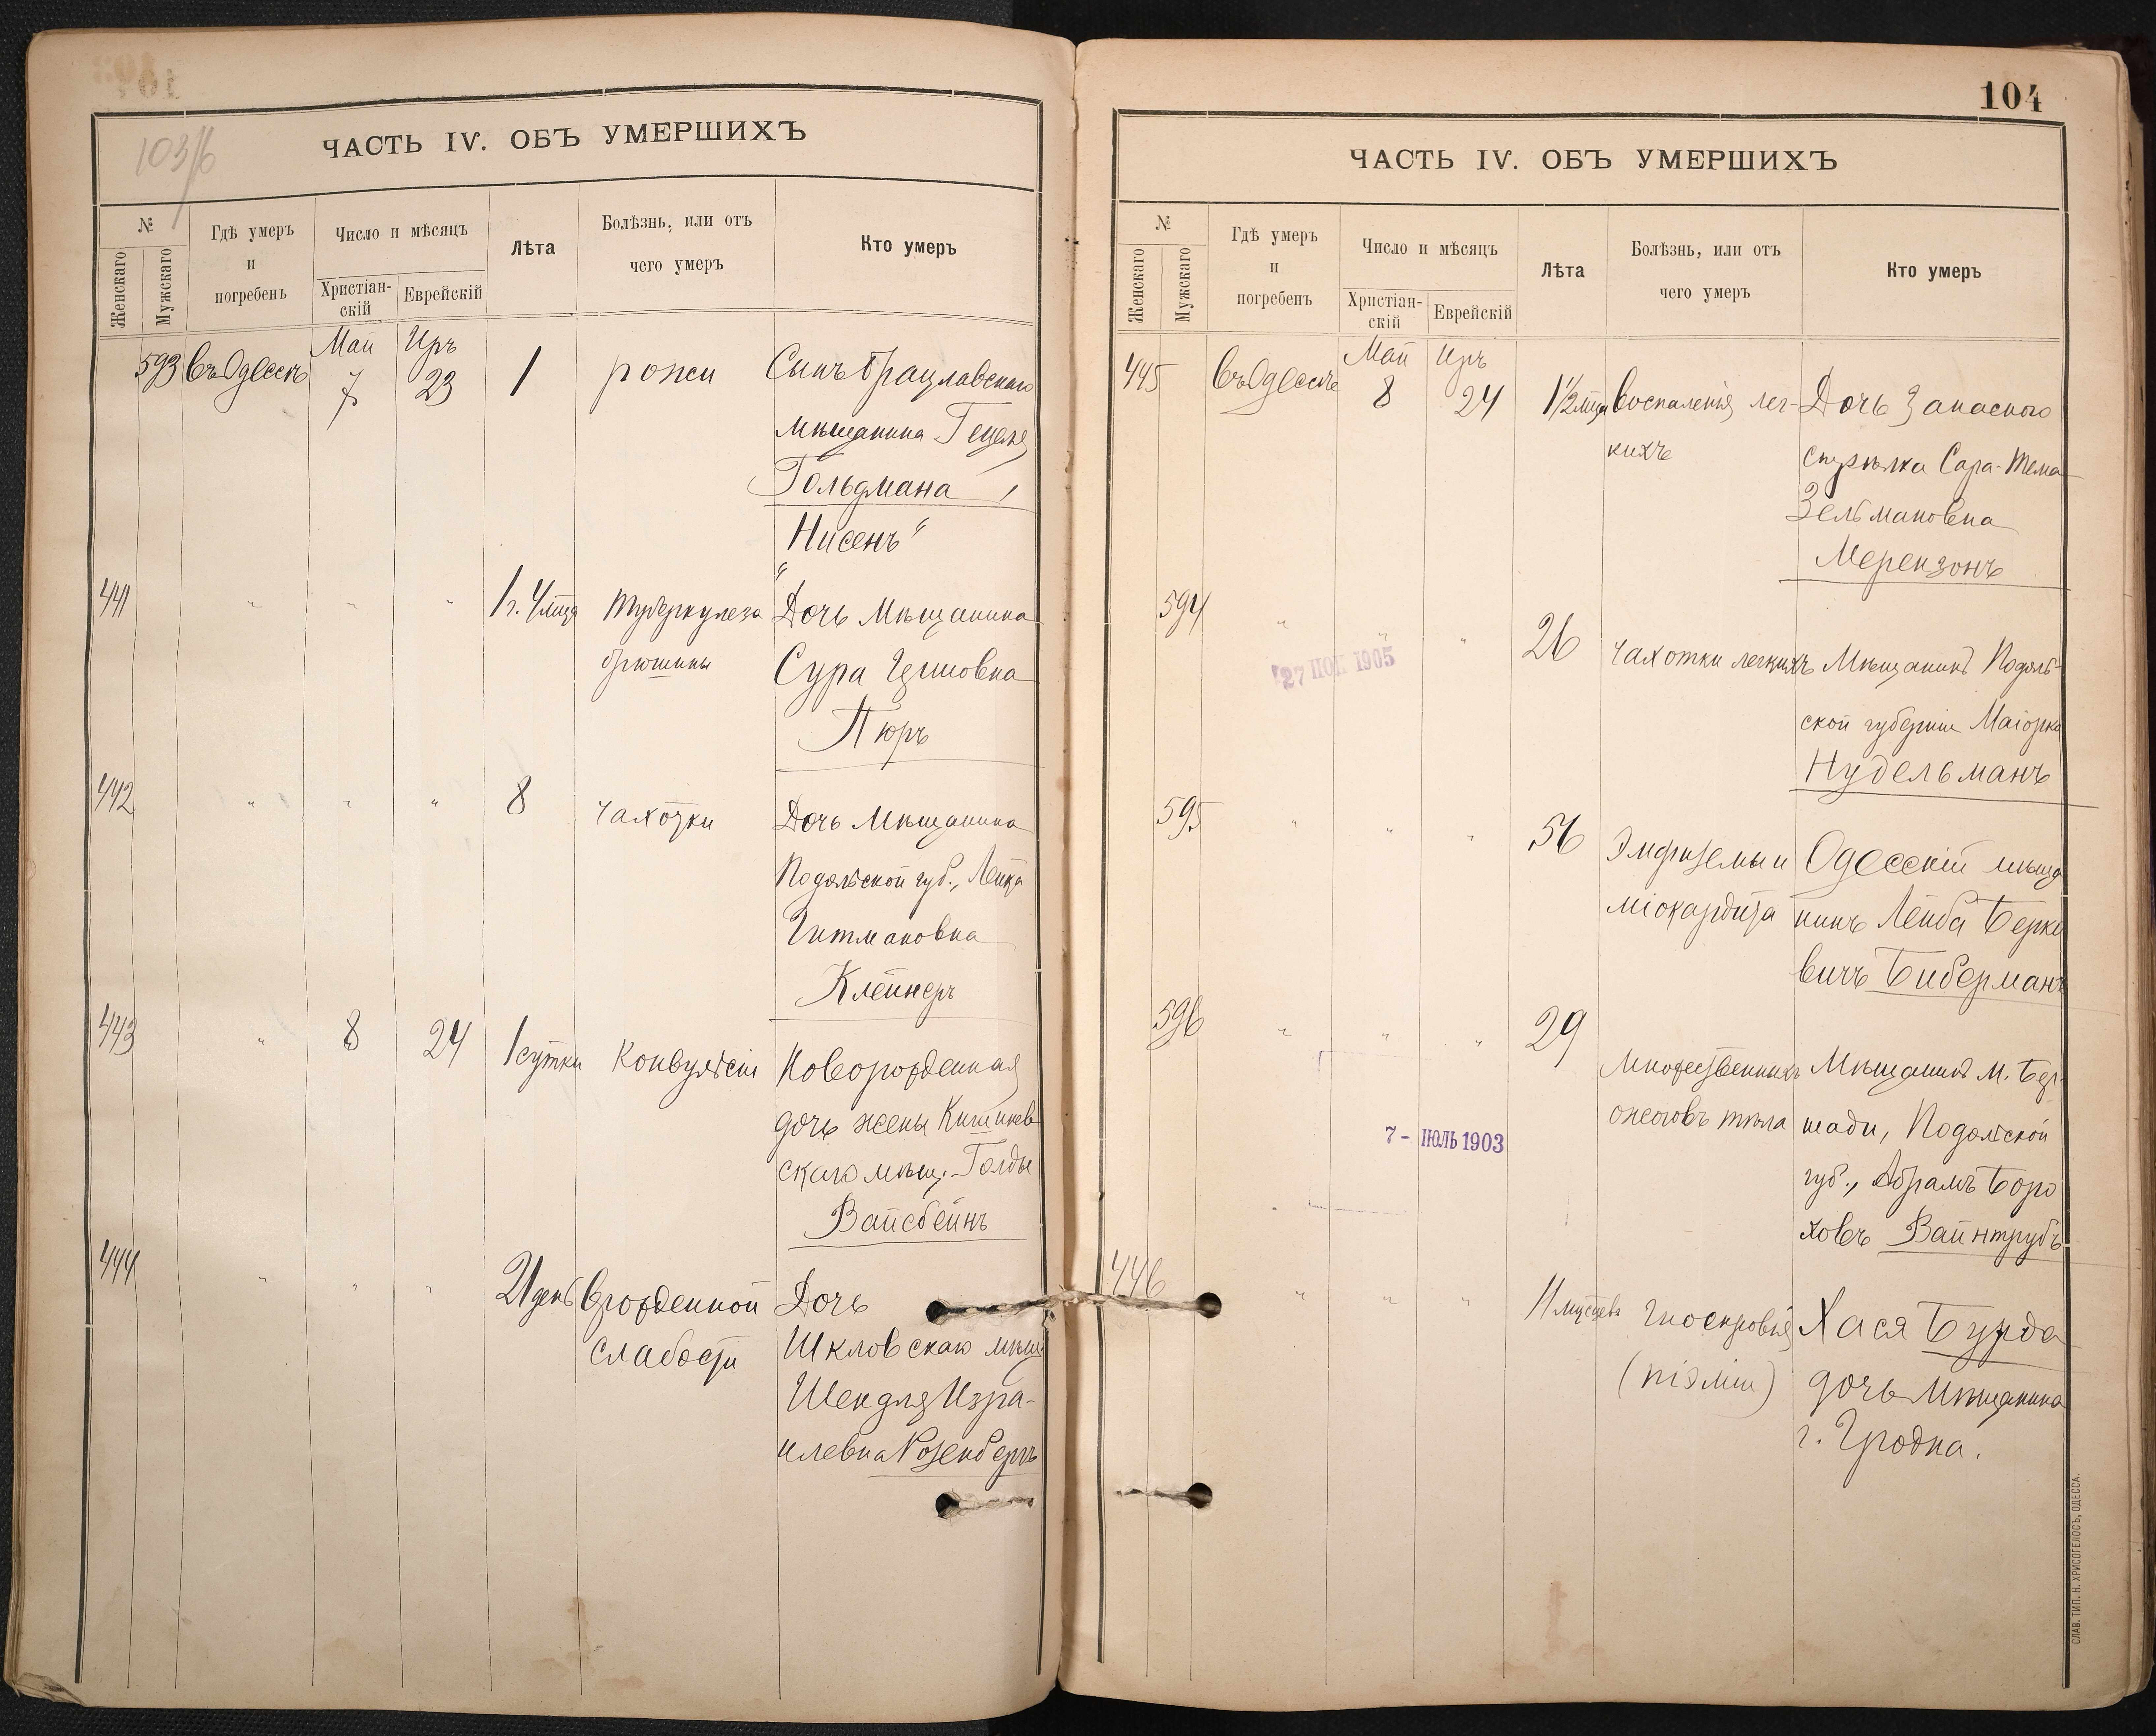 103/б
ЧАСТЬ IV. ОБЪ УМЕРШИХЪ
№
Женскаго
Мужскаго
Гдѣ умеръ
и
погребенъ
Число и мѣсяцъ
Христіан-
скій
Еврейскій
Лѣта
Болѣзнь, или отъ
чего умеръ
Кто умеръ
Май Иръ
593 Въ Одессѣ 7 23 1 рожи Сынъ Брацлавскаго
мѣщанина Гецеля
Гольдмана
Нисенъ"
441 " " " 1 г. 4 мца Туберкулеза Дочь Мѣщанина
брюшины Сура
Пюръ
442 " " " 8 чахотки Дочь Мѣщанина
Подольской губ., Лейка
Гитмановна
Клейнеръ
443 " 8 24 1 сутки Конвульсіи Новорожденная
дочь жены Кишинев
скаго мѣщ. Голды
Вайсбейнъ
444 " " " 21 день Врожденной Дочь
слабости Шкловскаго мѣщ.
Шендля Изра-
илевна Розенбергъ
104
ЧАСТЬ IV. ОБЪ УМЕРШИХЪ
№
Женскаго
Мужскаго
Гдѣ умеръ
и
погребенъ
Число и мѣсяцъ
Христіан-
скій
Еврейскій
Лѣта
Болѣзнь, или отъ
чего умеръ
Кто умеръ
Май Иръ
445 Въ Одессѣ 8 24 1 1/2 мца Воспаленія лег- Дочь Запаснаго
кихъ стрѣлка Сара-Тема
Зельмановна
Мерензонъ
594 " " " 26 чахотки легкихъ Мѣщанинъ Подоль-
ской губерніи Маіорко
Нудельманъ
27 1905
595 " " " 56 Эмфиземы и Одесскій мѣща
міокардита нинъ Лейба Берко
вичъ Биберманъ
596 " " " 29 Множественныхъ Мѣщанинъ м. Бер-
ожоговъ тѣла шади, Подольской
губ., Абрамъ Боро
ховъ Вайнтрубъ
7 - ІЮЛЬ 1903
446 " " " 11 мѣсяцевъ Гнокровія Хася Бурда
(піэміи) дочь Мѣщанина
г. Гродна.
СЛАВ. ТИП. Н. ХРИСОГЕЛОСЪ, ОДЕССА.